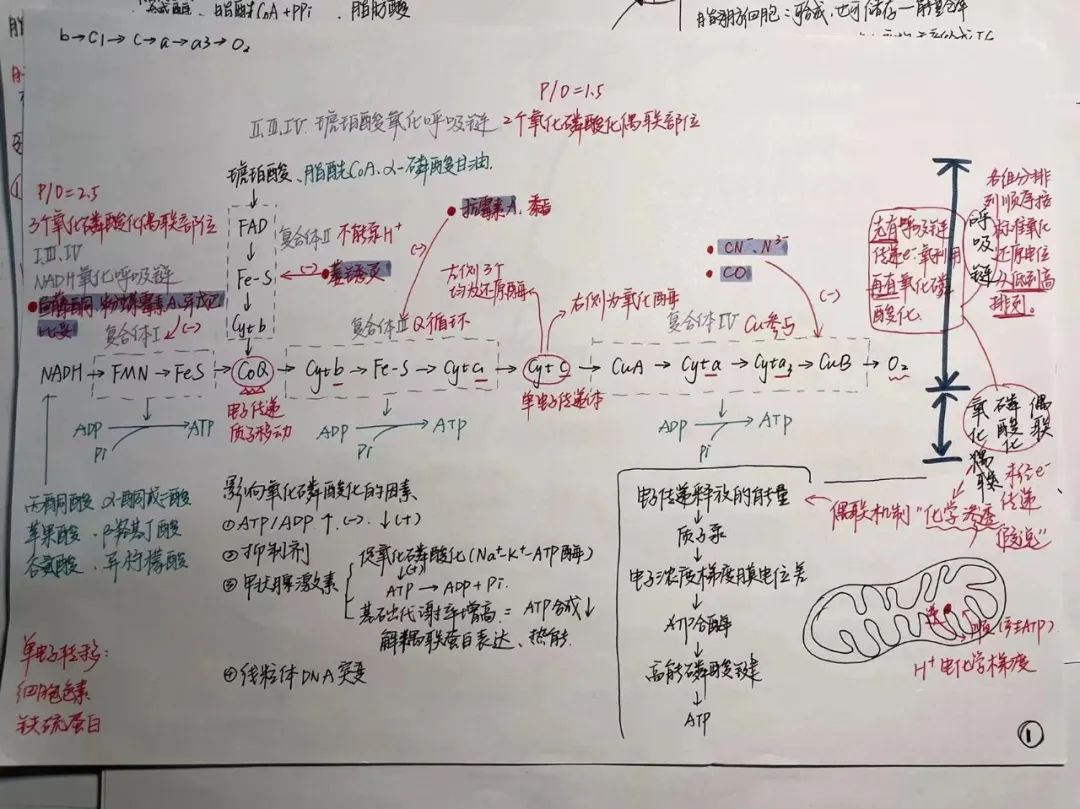 脂酰CoA+PPi、脂肪酸
b→C1→C→a→a3→O₂
P/O=1.5
II.III.IV. 琥珀酸氧化呼吸链 2个氧化磷酸化偶联部位
琥珀酸、脂酰CoA、α-磷酸甘油.
P/O=2.5
3个氧化磷酸化偶联部位
I.III.IV
NADH氧化呼吸链
鱼藤酮、粉蝶霉素A、异戊巴比妥
复合体I (-)
FAD
Fe-S
Cytb
复合体II 不能泵H⁺
(-) 萎锈灵
抗霉素A、
(-)
复合体III Q循环
左侧3个
均为还原酶
右侧为氧化酶
CN⁻、N³⁻
CO
(-)
复合体IV Cu参与
NADH→FMN→FeS→CoQ→Cytb→Fe-S→Cytc₁→Cytc→CuA→Cyta→Cyta₃→CuB→O₂
电子传递
质子移动
单电子传递体
ADP→ATP
Pi
ADP→ATP
Pi
ADP→ATP
Pi
先有呼吸链
传递e⁻氧利用
再有氧化磷
酸化.
呼吸链
各组分排
列顺序按
标准氧化
还原电位
从低到高
排列。
氧化磷酸化偶联
偶联
传递
偶联机制"化学渗透
假说"
丙酮酸、α-酮戊二酸
苹果酸、β-羟基丁酸
谷氨酸、异柠檬酸
单电子转移:
细胞色素
铁硫蛋白
影响氧化磷酸化的因素
①ATP/ADP ↑(-) ↓(+)
②抑制剂
③甲状腺激素
促氧化磷酸化(Na⁺-K⁺-ATP酶)
↓(+)
ATP→ADP+Pi.
基础代谢率增高= ATP合成↓
解耦联蛋白表达、热能.
④线粒体DNA突变
电子传递释放的能量
↓
质子泵
↓
电子浓度梯度膜电位差
↓
ATP合酶
↓
高能磷酸键
↓
ATP
逆
顺(生ATP)
H⁺电化学梯度
①